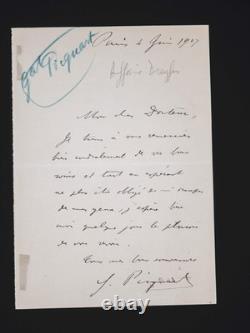 gal Picquart
Paris 4 Juin 1907
Affaire Dreyfus
Mon cher Docteur,
Je tiens à vous remercier
bien cordialement de vos bons
soins et tout en espérant
ne plus être obligé de m'occuper
de mes yeux, j'espère bien
avoir quelque jour le plaisir
de vous revoir.
Tous mes bons souvenirs
G. Picquart